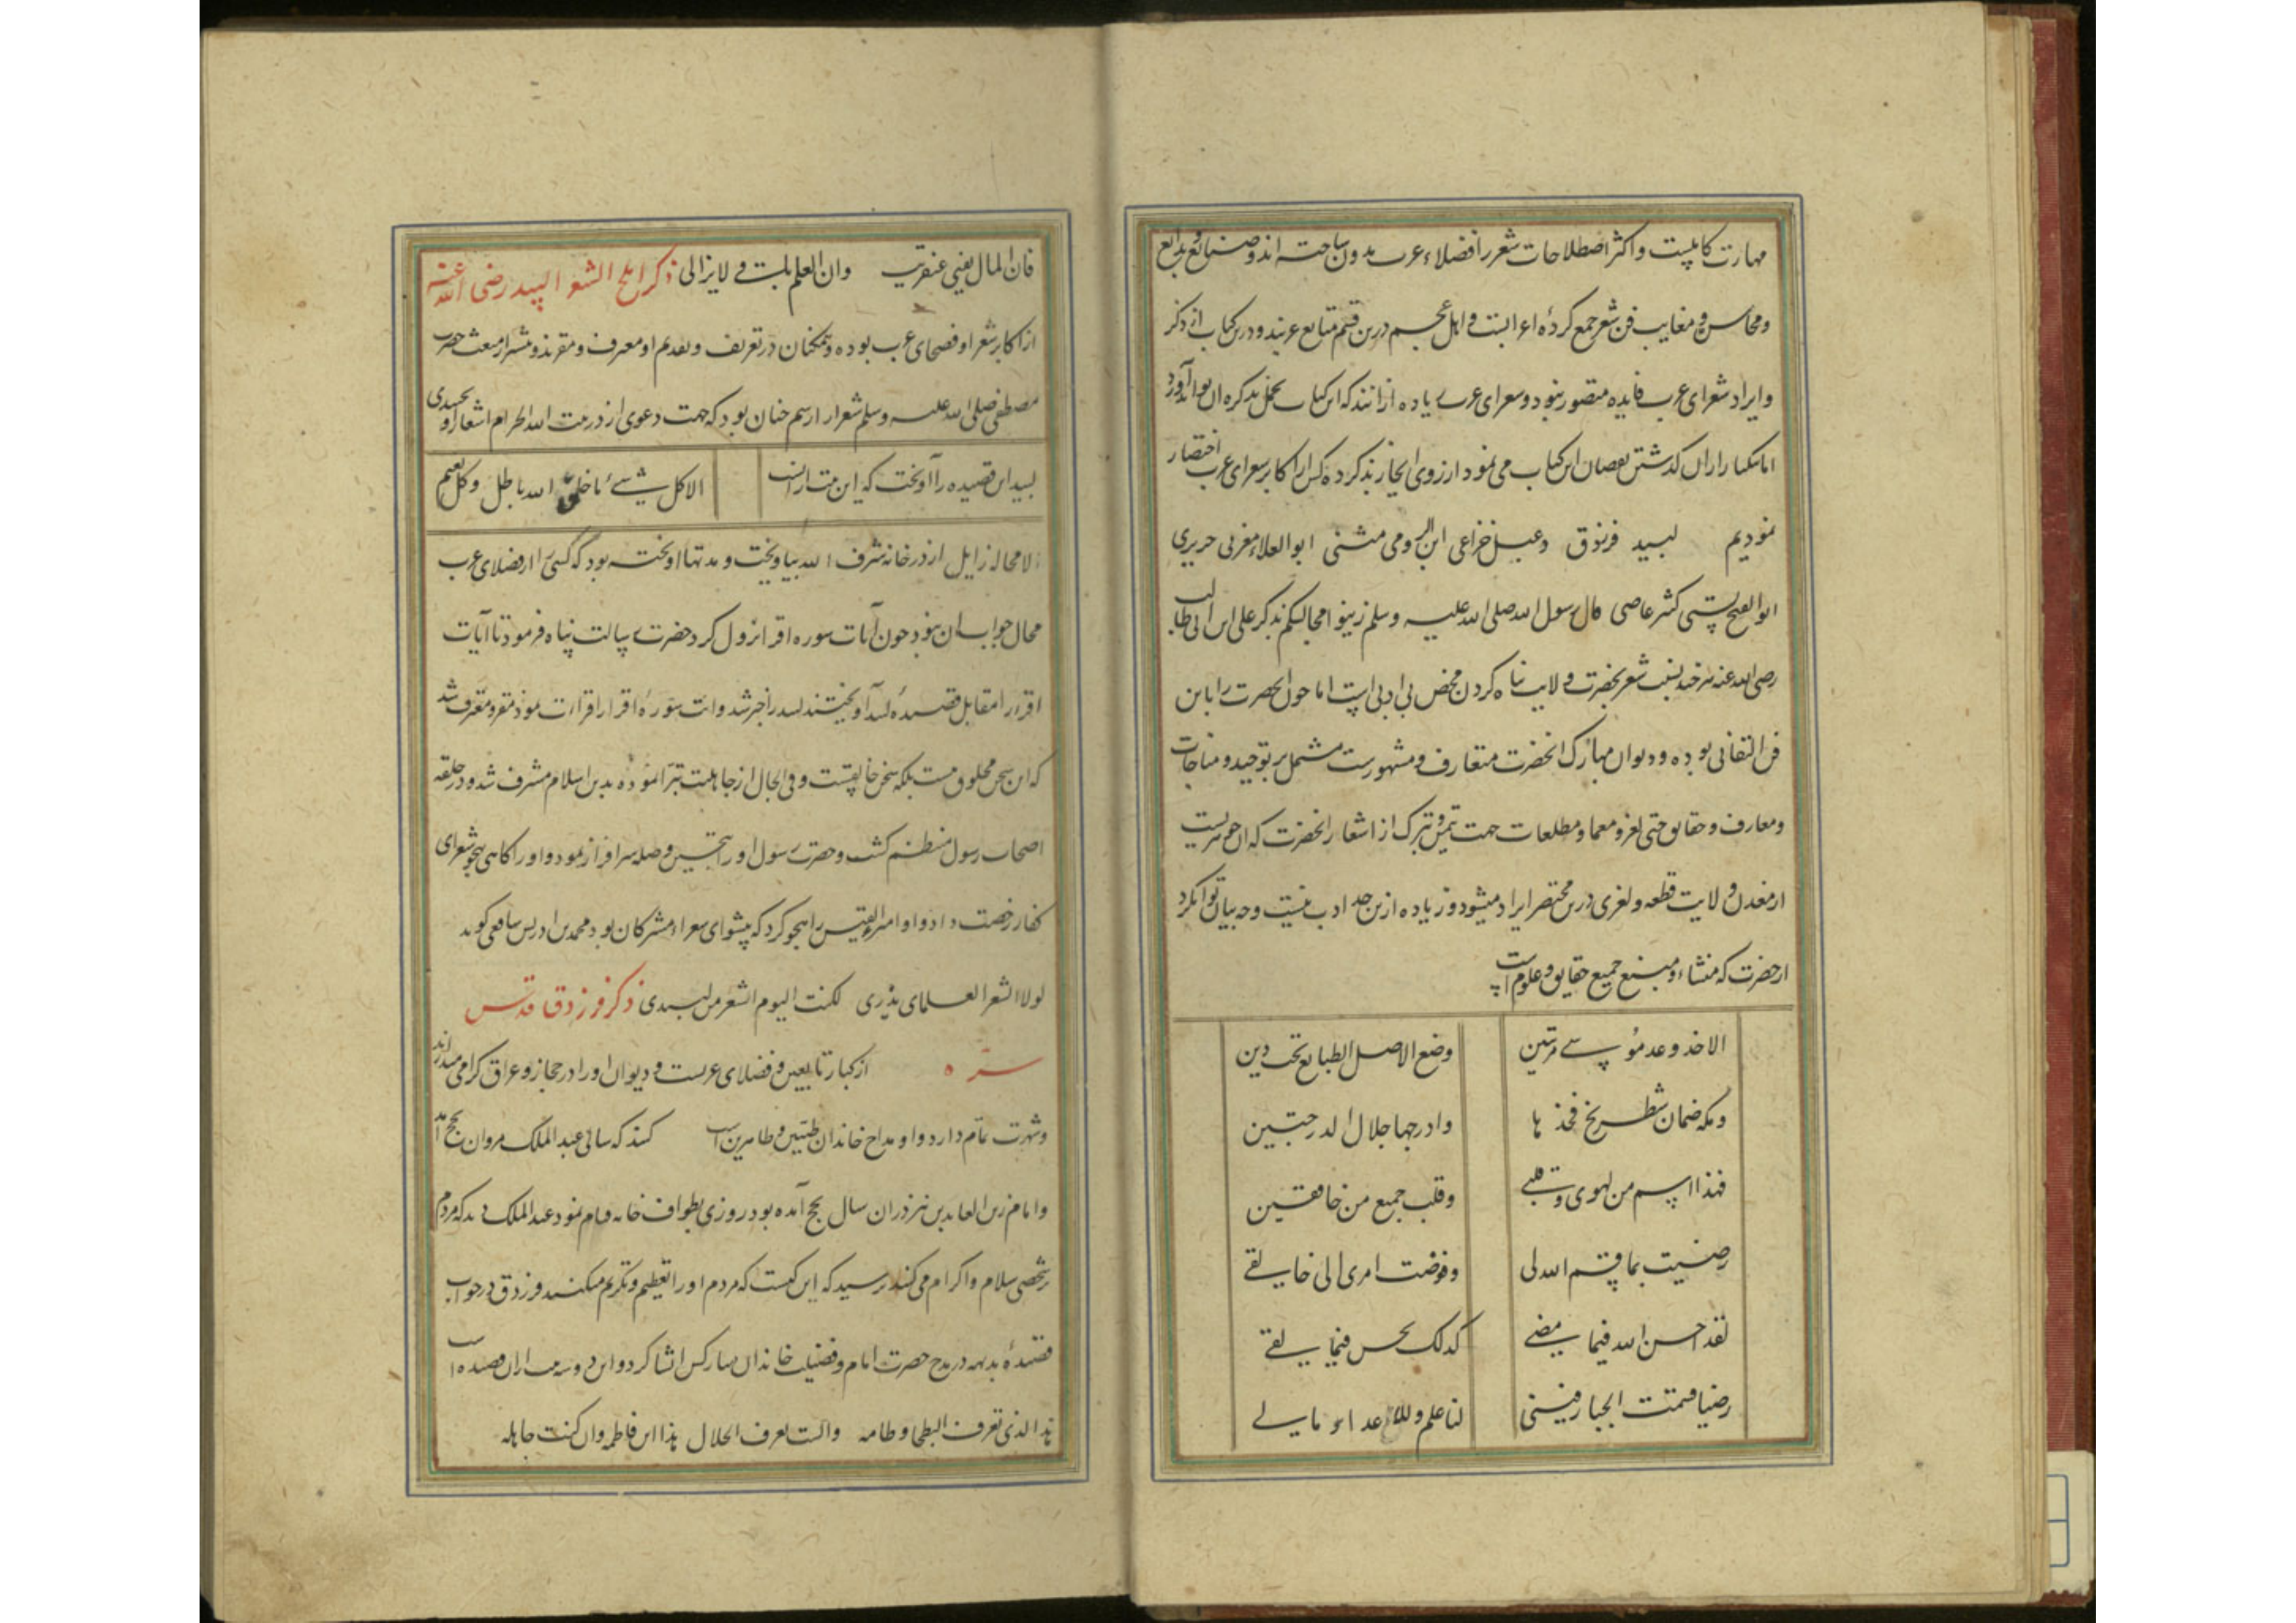 مهارت کاملیست و اکثر اصطلاحات شعر را فضلاء عرب مدون ساخته اند و صنایع و بدایع
و محاسن و معایب فن شعر جمع کرده اعرابست و اهل عجم درین قسم متابع عربند و درین کتاب از ذکر
و ایراد شعرای عرب فایده متصور نبود و شعرای عرب زیاده از انند که این کتاب تحمل تذکره ان تواند آورد
اما یکبار از ان گذشتن نقصان این کتاب می نمود از روی ایجاز تذکره اکابر شعرای عرب اختصار
نمودیم لبید فرزدق دعبل خزاعی ابن الرومی متنبی ابوالعلاء مغربی حریری
ابوالفتح بستی کثیر عاصی قال رسول الله صلی الله علیه وسلم زینوا مجالسکم بذکر علی ابن ابی طالب
رضی الله عنه هر چند نسبت شعر بحضرت ولایت پناه کردن محض بی ادبی است اما چون انحضرت را باین
فن التفاتی بوده و دیوان مبارک انحضرت متعارف و مشهورست مشتمل بر توحید و مناجات
و معارف و حقایق حتی لغز و معما و مطلعات جهت تیمن و تبرک از اشعار انحضرت که
از معدن ولایت قطعه و لغزی درین مختصر ایراد میشود و زیاده ازین حد ادب نیست و چه بیان توان کرد
از حضرت که منشاء و منبع جمیع حقایق و علوم است
الا خذ وعد موسی مرتین وضع الاصل الطبایع تحت دین
و سکه ضمان شطرنج فخذها وادرجها خلال الدرجتین
فهذا اسم من یهوی وقلبی وقلب جمیع من خافقین
رضیت بما قسم الله لی وفوضت امری الی خالقی
لقد احسن الله فیما مضی کذلک یحسن فیما بقی
رضینا قسمت الجبار فینی لنا علم وللاعداء مالی
فان المال یفنی عنقریب وان العلم لایزالی ذکر املح الشعرا لبید رضی الله عنه
از اکابر شعرا و فصحای عرب بوده و همکنان در تعریف و تقدیم او معترف و مقرند و پیشتر از مبعث حضرت
مصطفی صلی الله علیه وسلم شعرا را رسم چنان بود که جهت دعوی از در بیت الله الحرام اشعار آویختندی
لبید این قصیده را آویخت که این بیت از انست الا کل شیء ما خلق الله باطل وکل نعیم
لا محاله زایل از در خانه شرف الله بیاویخت و مدتها اویخته بود که کسی را از فضلای عرب
مجال جواب ان نبود چون آیات سوره اقرا نزول کرد حضرت رسالت پناه فرمود تا آیات
اقرا را مقابل قصیده لبید آویختند لبید را خبر شد و ایت سوره اقرا را قراات نمود مقر و معترف شد
که این سخن مخلوق نیست بلکه سخن خالقست و فی الحال از جاهلیت تبرا نموده بدین اسلام مشرف شد و در حلقه
اصحاب رسول منظم کشت و حضرت رسول او را بتحسین و صله سرافراز نمود و او را کاهی بهجو شعرای
کفار رخصت داد و او امرءالقیس را هجو کرد که پیشوای شعراء مشرکان بود محمد بن ادریس شافعی کوید
لولا الشعر العلمای یذری لکنت الیوم اشعر من لبیدی ذکر فرزدق قدس
سره از کبار تابعین و فضلای عربست و دیوان او را در حجاز و عراق کرامی میدارند
و شهرت تمام دارد و او مداح خاندان طیبین و طاهرین است کنند که سالی عبدالملک مروان بحج آمد
و امام زین العابدین نیز در ان سال بحج آمده بود روزی بطواف خانه قیام نمود عبدالملک دید که مردم
بر شخصی سلام و اکرام می کنند پرسید که این کیست که مردم او را تعظیم و تکریم میکنند فرزدق در جواب
قصیده بدیهه در مدح حضرت امام و فضیلت خاندان مبارکش انشا کرد و این دو سه بیت از ان قصیده است
هذا الذی تعرف البطحا وطاته والبیت یعرف الحلال هذا ابن فاطمه وان کنت جاهله